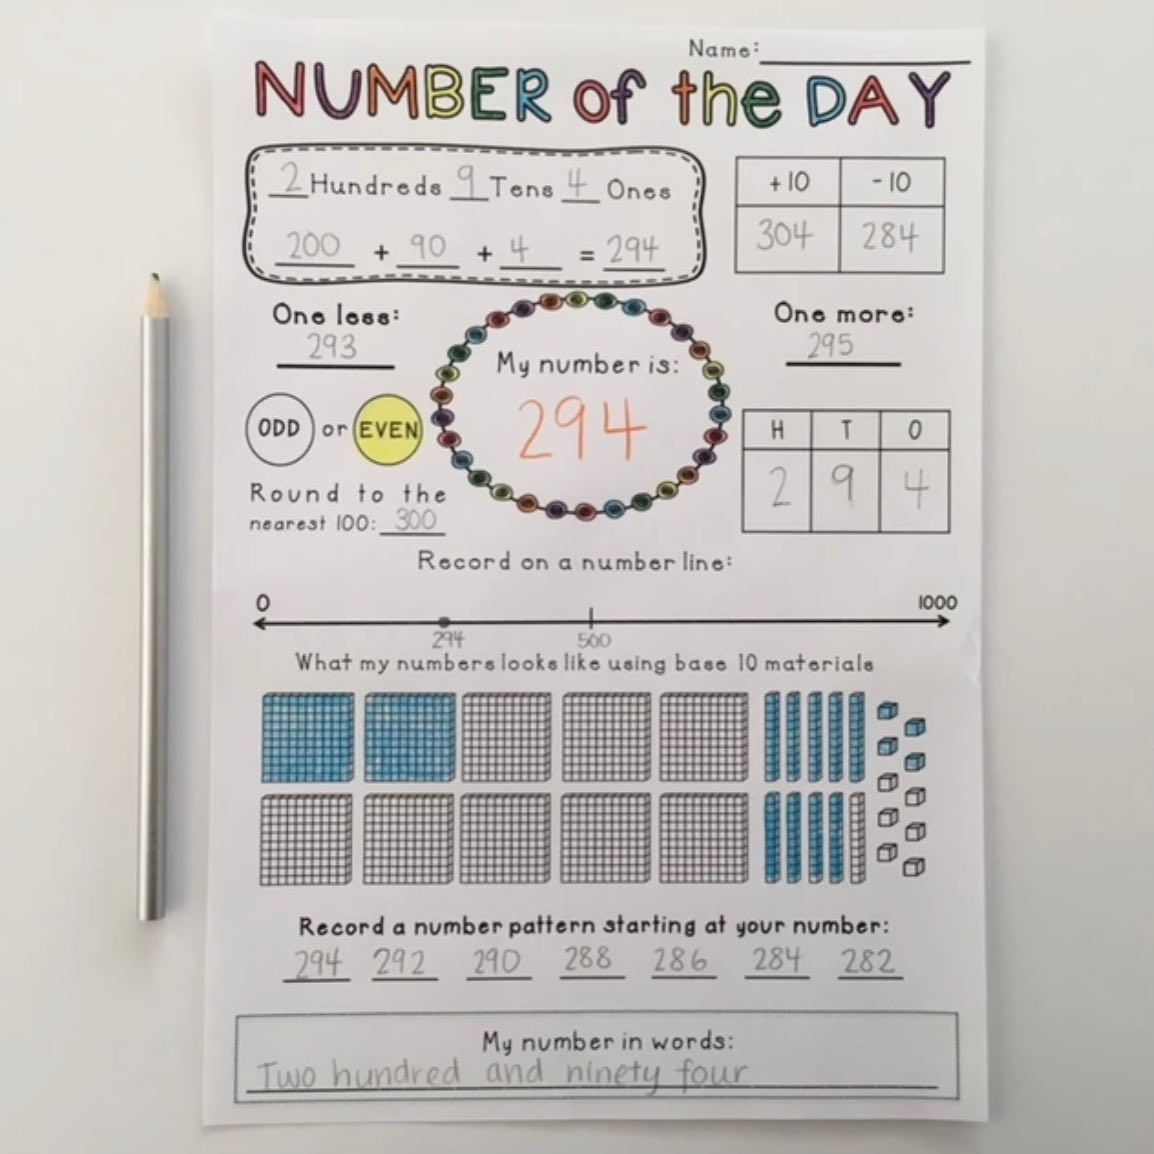 Name:
NUMBER of the DAY
2 Hundreds 9 Tens 4 Ones
200 + 90 + 4 = 294
+10 -10
304 284
One less:
293
One more:
295
My number is:
294
ODD or EVEN
Round to the
nearest 100: 300
H T O
2 9 4
Record on a number line:
0 1000
294 500
What my numbers looks like using base 10 materials
Record a number pattern starting at your number:
294 292 290 288 286 284 282
My number in words:
Two hundred and ninety four